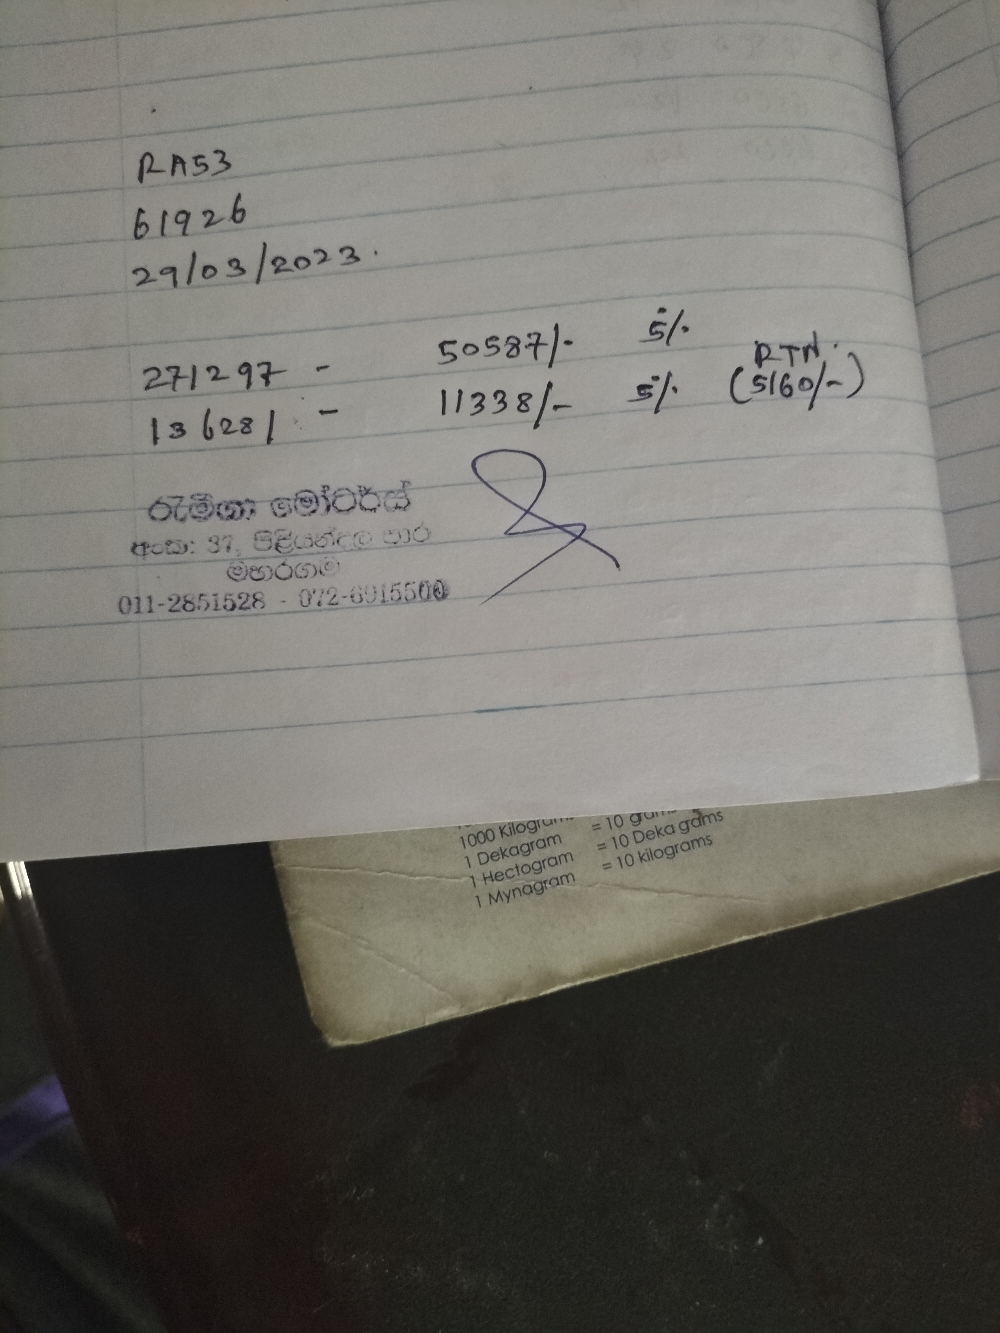 RA53
61926
29/03/2023.
271297 - 50587/- 5%
RTN.
136281 - 11338/- 5% (5160/-)
රැමීශා මෝටර්ස්
අංක: 37, පිළියන්දල පාර
මහරගම
011-2851528 - 072-6915500
1000 Kilograms = 10 grams
1 Dekagram = 10 Deka gdms
1 Hectogram = 10 kilograms
1 Mynagram